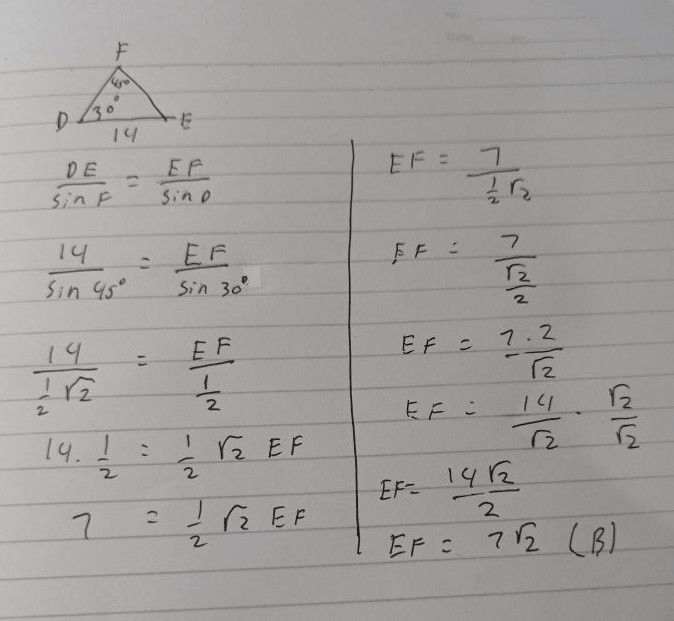 F
45°
D 30° E
14
DE/sin F = EF/sin D
14/sin 45° = EF/sin 30°
14/(1/2 √2) = EF/(1/2)
14 . 1/2 = 1/2 √2 EF
7 = 1/2 √2 EF
EF = 7/(1/2 √2)
EF = 7/(√2/2)
EF = 7 . 2/√2
EF = 14/√2 . √2/√2
EF = 14√2/2
EF = 7√2 (B)